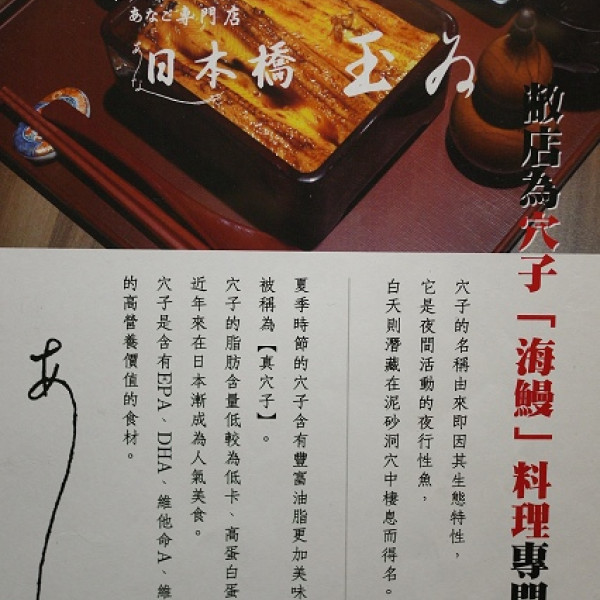 あなご専門店
日本橋 玉ゐ
敝店為穴子「海鰻」料理專門
穴子的名稱由來即因其生態特性，
它是夜間活動的夜行性魚，
白天則潛藏在泥砂洞穴中棲息而得名。
夏季時節的穴子含有豐富油脂更加美味
被稱為【真穴子】。
穴子的脂肪含量低較為低卡、高蛋白蛋
近年來在日本漸成為人氣美食。
穴子是含有EPA、DHA、維他命A、維
的高營養價值的食材。
あ